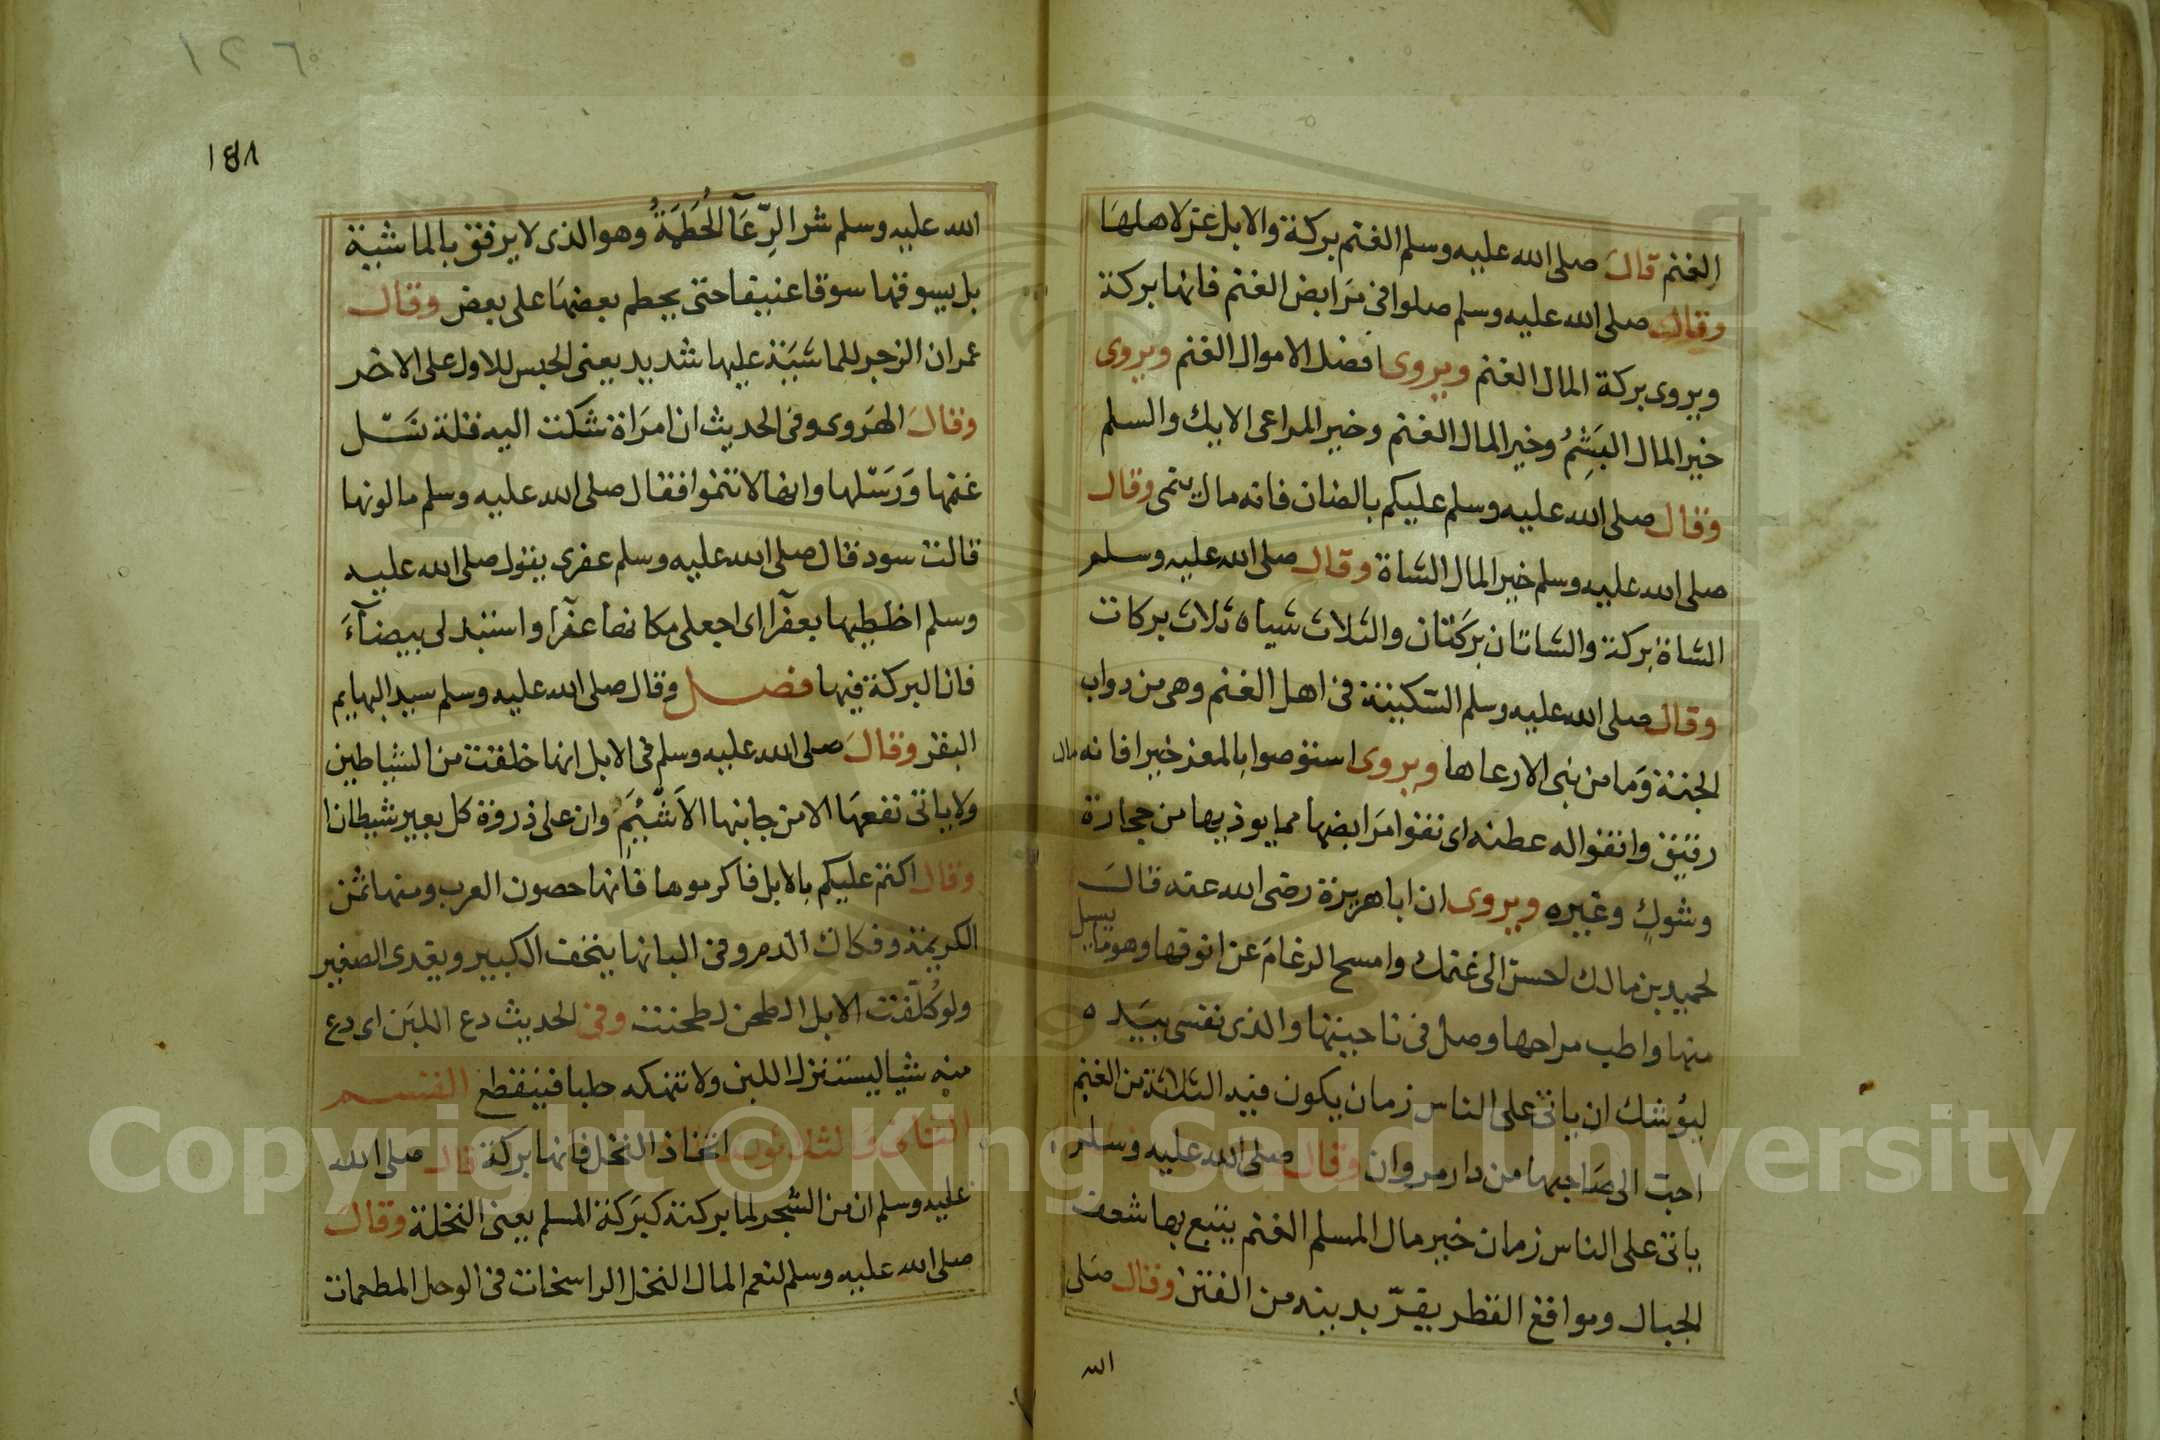 الغنم قال صلى الله عليه وسلم الغنم بركة والابل عز لاهلها
وقال صلى الله عليه وسلم صلوا في مرابض الغنم فانها بركة
ويروى بركة المال الغنم ويروى افضل الاموال الغنم ويروى
خير المال البَشِمُ وخير المال الغنم وخير المراعى الايك والسلم
وقال صلى الله عليه وسلم عليكم بالضان فانه مال ينمى وقال
صلى الله عليه وسلم خير المال الشاة وقال صلى الله عليه وسلم
الشاة بركة والشاتان بركتان والثلاث شياه ثلاث بركات
وقال صلى الله عليه وسلم السّكينة في اهل الغنم وهي من دواب
الجنة وما من نبى الا رعاها ويروى استوصوا بالمعز خيرا فانه مال
رقيق وانقوا له عطنه اى نقوا مرابضها مما يوذيها من حجارة
وشوك وغيره ويروى ان ابا هريرة رضى الله عنه قال
لحميد بن مالك احسن الى غنمك وامسح الرغام عن انوفها وهو ما يسيل
منها واطب مراحها وصل في ناحيتها والذى نفسى بيده
ليوشك ان ياتى على الناس زمان يكون فيه الثلاثة من الغنم
احب الى صاحبها من دار مروان وقال صلى الله عليه وسلم
ياتى على الناس زمان خير مال المسلم الغنم يتبع بها شعف
الجبال ومواقع القطر يفرّ بدينه من الفتن وقال صلى
الله
١٢٦
١٤٨
الله عليه وسلم شر الرِّعَآ الحُطَمَةُ وهو الذى لا يرفق بالماشية
بل يسوقها سوقا عنيفا حتى يحطم بعضها على بعض وقال
عمران الزجر للماشية عليها شديد يعنى الحبس للاول على الاخر
وقال الهروى وفي الحديث ان امراة شكت اليه قلة نسل
غنمها ورسلها وانها لا تنموا فقال صلى الله عليه وسلم ما لونها
قالت سود قال صلى الله عليه وسلم عفرى يقول صلى الله عليه
وسلم اخلطيها بعفرآ اى اجعلى مكانها عفرآ واستبدلى بيضآء
فان البركة فيها فصل وقال صلى الله عليه وسلم سيد البهايم
البقر وقال صلى الله عليه وسلم في الابل انها خلقت من الشياطين
ولا ياتى نفعها الا من جانبها الاَشْئَمِ وان على ذروة كل بعير شيطانا
وقال اكثم عليكم بالابل فاكرموها فانها حصون العرب ومنها ثمن
الكريمة وفكاك الدم وفي البانها يتحف الكبير ويغدى الصغير
ولو كُلّفت الابل الطحن لطحنت وفي الحديث دع اللبن اى دع
منه شيا ليستنزل اللبن ولا تنهكه حلبا فينقطع القسم
الثانى والثلاثون اتخاذ النخل فانها بركة قال صلى الله
عليه وسلم ان من الشجر لما بركته كبركة المسلم يعنى النخلة وقال
صلى الله عليه وسلم لنعم المال النخل الراسخات في الوحل المطعمات
Copyright © King Saud University